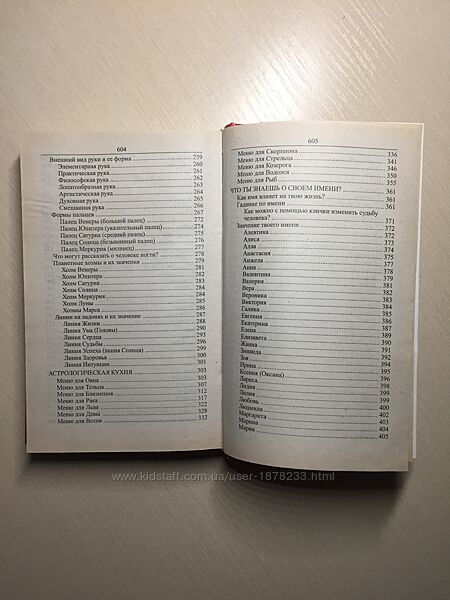 604
Внешний вид руки и ее форма 259
Элементарная рука 260
Практическая рука 261
Философская рука
Лопатообразная рука
Артистическая рука
Духовная рука
Смешанная рука
Формы пальцев 267
Палец Венеры (большой палец) 272
Палец Юпитера (указательный палец) 274
Палец Сатурна (средний палец) 275
Палец Солнца (безымянный палец) 276
Палец Меркурия (мизинец) 277
Что могут рассказать о человеке ногти? 278
Планетные холмы и их значения 279
Холм Венеры 281
Холм Юпитера 281
Холм Сатурна 283
Холм Солнца 284
Холм Меркурия 284
Холм Луны
Холмы Марса 286
Линии на ладонях и их значение 287
Линия Жизни 288
Линия Ума (Головы) 290
Линия Сердца 293
Линия Судьбы 296
Линия Успеха (линия Солнца) 299
Линия Здоровья 300
Линия Интуиции 301
АСТРОЛОГИЧЕСКАЯ КУХНЯ 303
Меню для Овна 303
Меню для Тельца 307
Меню для Близнецов 312
Меню для Рака 317
Меню для Льва 322
Меню для Девы 328
Меню для Весов 332
605
Меню для Скорпиона 336
Меню для Стрельца 341
Меню для Козерога 346
Меню для Водолея 350
Меню для Рыб 355
ЧТО ТЫ ЗНАЕШЬ О СВОЕМ ИМЕНИ? 361
Как имя влияет на твою жизнь? 361
Гадание по имени 361
Как можно с помощью клички изменить судьбу
человека? 371
Значение твоего имени 372
Алевтина 372
Алиса 373
Алла 374
Анастасия 375
Анжела 377
Анна 378
Валентина 379
Валерия 381
Вера 382
Вероника 383
Виктория 384
Галина 385
Евгения 386
Екатерина 387
Елена 389
Елизавета 390
Жанна 391
Зинаида 392
Зоя 394
Ирина 395
Ксения (Оксана) 396
Лариса 397
Лидия 398
Лилия 399
Любовь 400
Людмила 402
Маргарита 403
Марина 404
Мария 405
www.kidstaff.com.ua/user-1878233.html